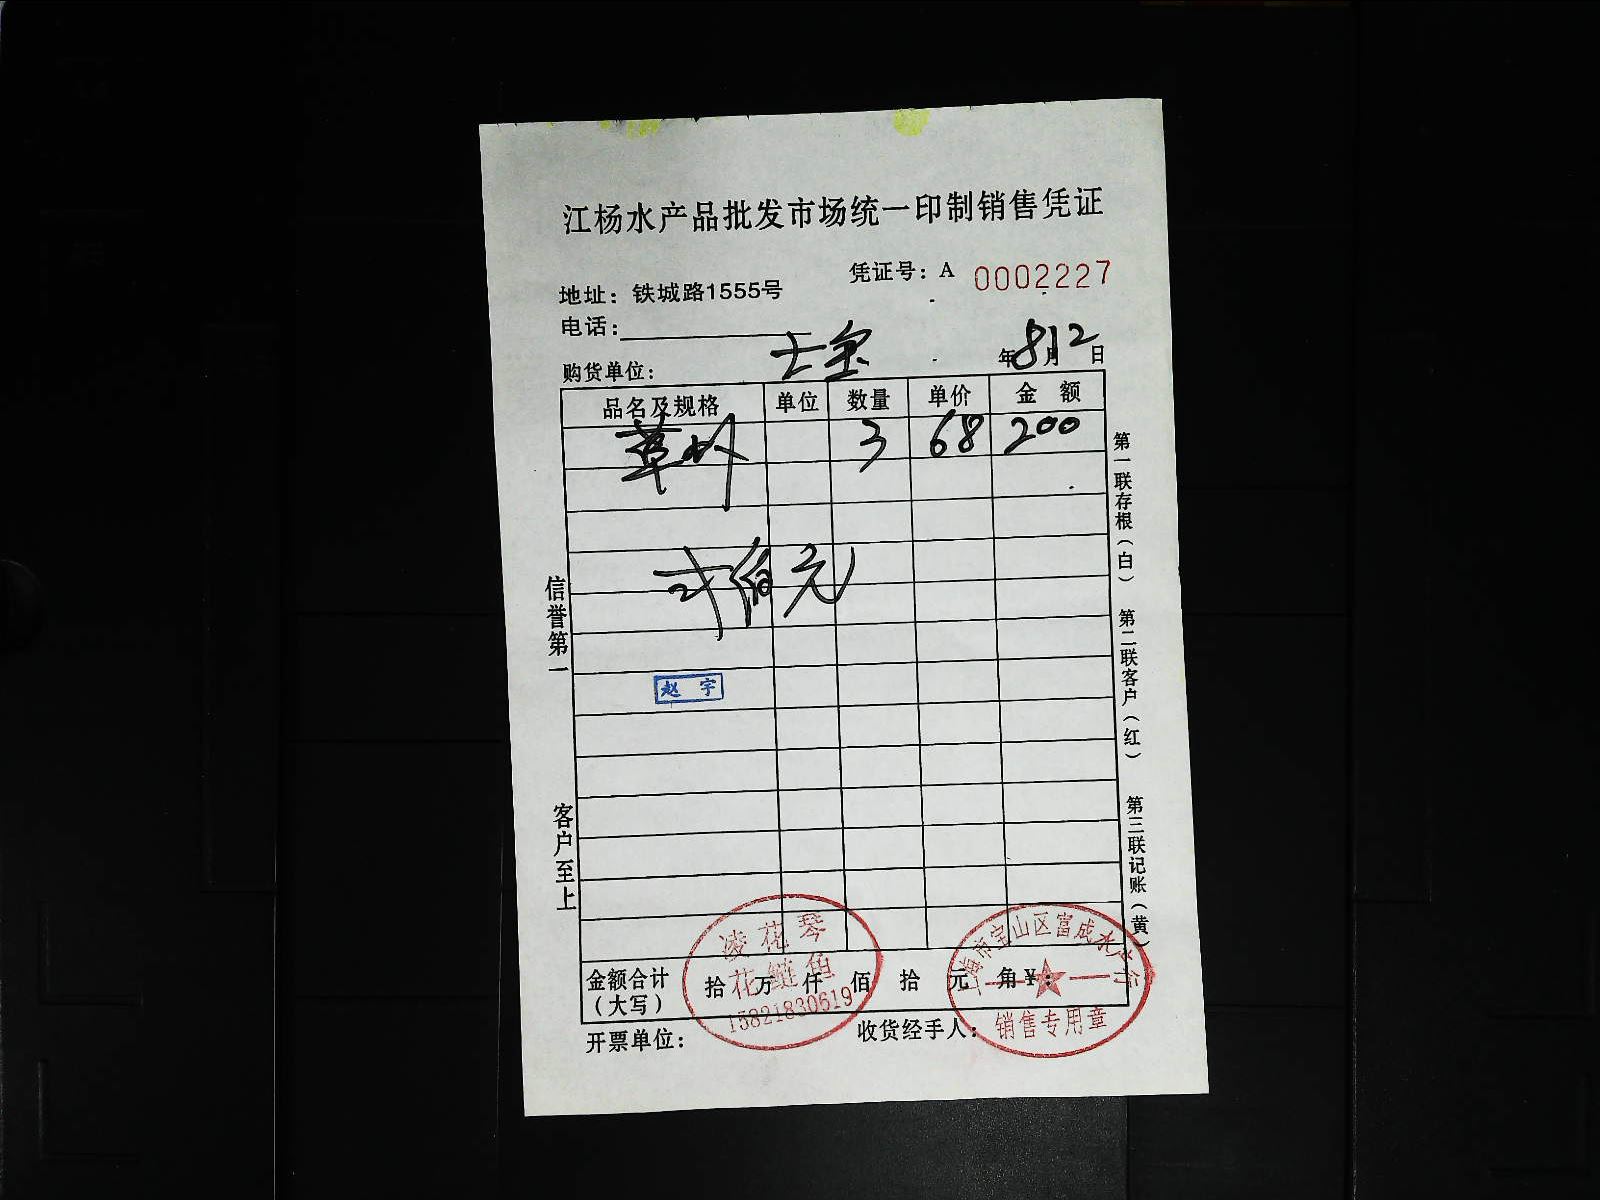 江杨水产品批发市场统一印制销售凭证
凭证号：A 0002227
地址：铁城路1555号
电话：
购货单位： 士宝 年8月12日
品名及规格 单位 数量 单价 金额
草 3 68 200
弍佰元
赵宇
信誉第一
客户至上
第一联存根（白）
第二联客户（红）
第三联记账（黄）
金额合计（大写） 拾 万 仟 佰 拾 元 角 ¥：
开票单位： 收货经手人：
凌花琴
花鲢鱼
15821830619
上海市宝山区富成水产行
销售专用章